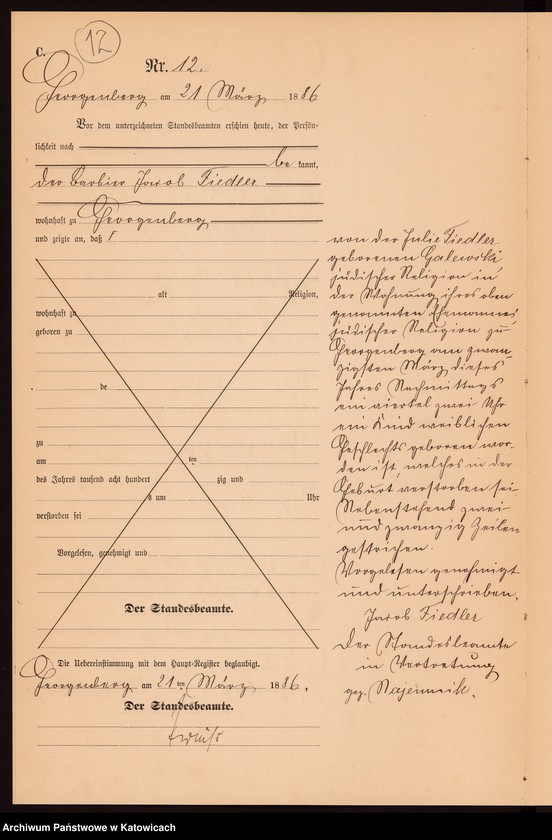 C.
12
Nr. 12.
Georgenberg am 21 März 1886
Vor dem unterzeichneten Standesbeamten erschien heute, der Persön-
lichkeit nach
be kannt,
der Barbier Jacob Fiedler
wohnhaft zu Georgenberg
und zeigte an, daß
alt Religion,
wohnhaft zu
geboren zu
de
zu
am ten
des Jahres tausend acht hundert zig und
s um Uhr
verstorben sei
Vorgelesen, genehmigt und
Der Standesbeamte.
Die Uebereinstimmung mit dem Haupt-Register beglaubigt.
Georgenberg am 21ten März 1886.
Der Standesbeamte.
von der Julie Fiedler
geborenen Galewski
jüdischer Religion in
der Wohnung ihres oben
genannten Ehemannes
jüdischer Religion zu
Georgenberg am zwan-
zigsten März dieses
Jahres Nachmittags
ein viertel zwei Uhr
ein Kind weiblichen
Geschlechts geboren wor-
den ist, welches in der
Geburt verstorben sei
Nebenstehend zwei
und zwanzig Zeilen
gestrichen.
Vorgelesen genehmigt
und unterschrieben.
Jacob Fiedler
Der Standesbeamte
in Vertretung
gez.
Archiwum Państwowe w Katowicach